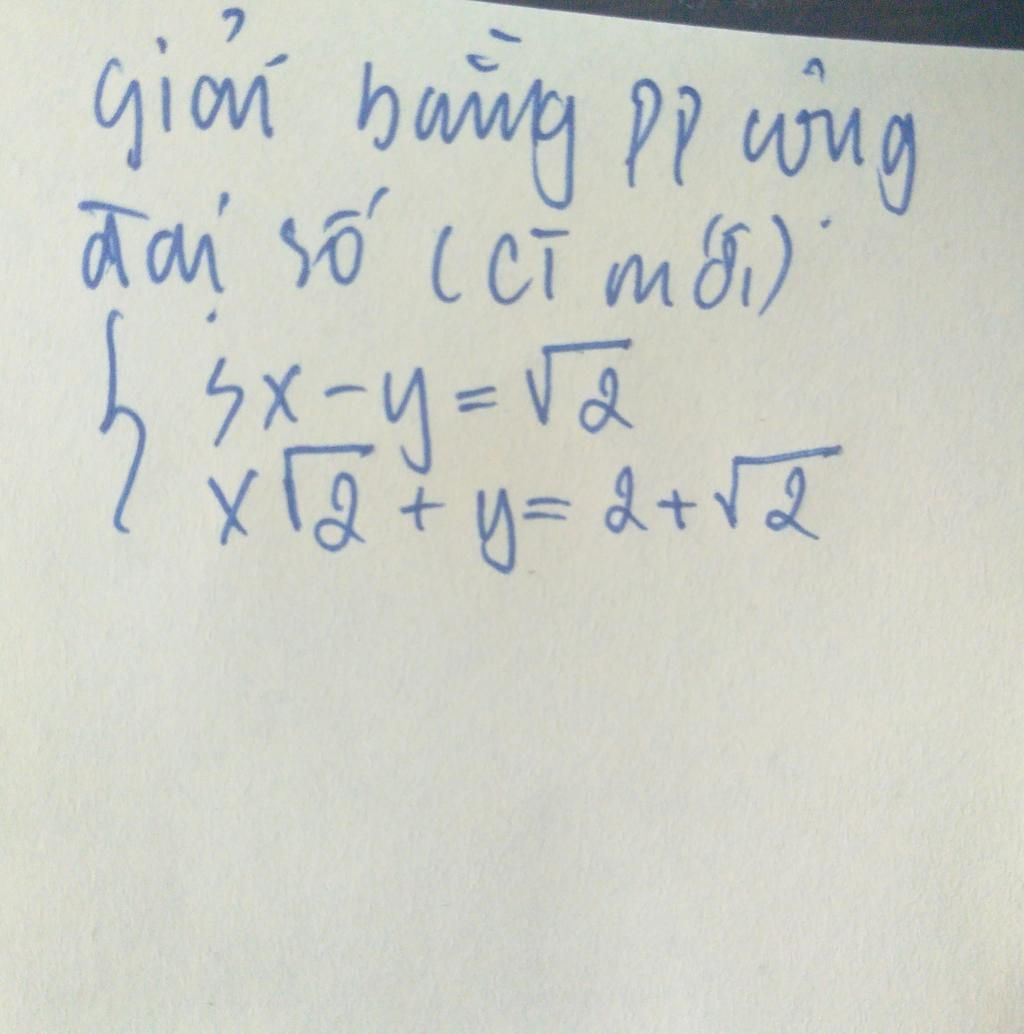 Giải bằng PP cộng
đại số (CT mới)
{ 3x - y = √2
x√2 + y = 2 + √2